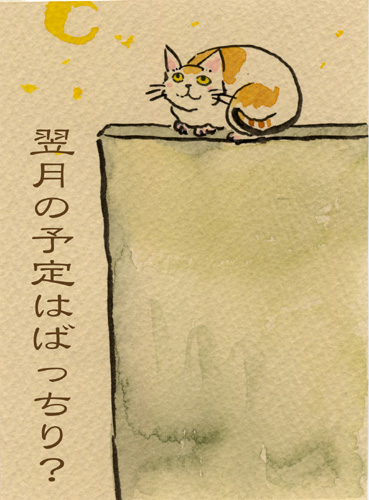 翌月の予定はばっちり？